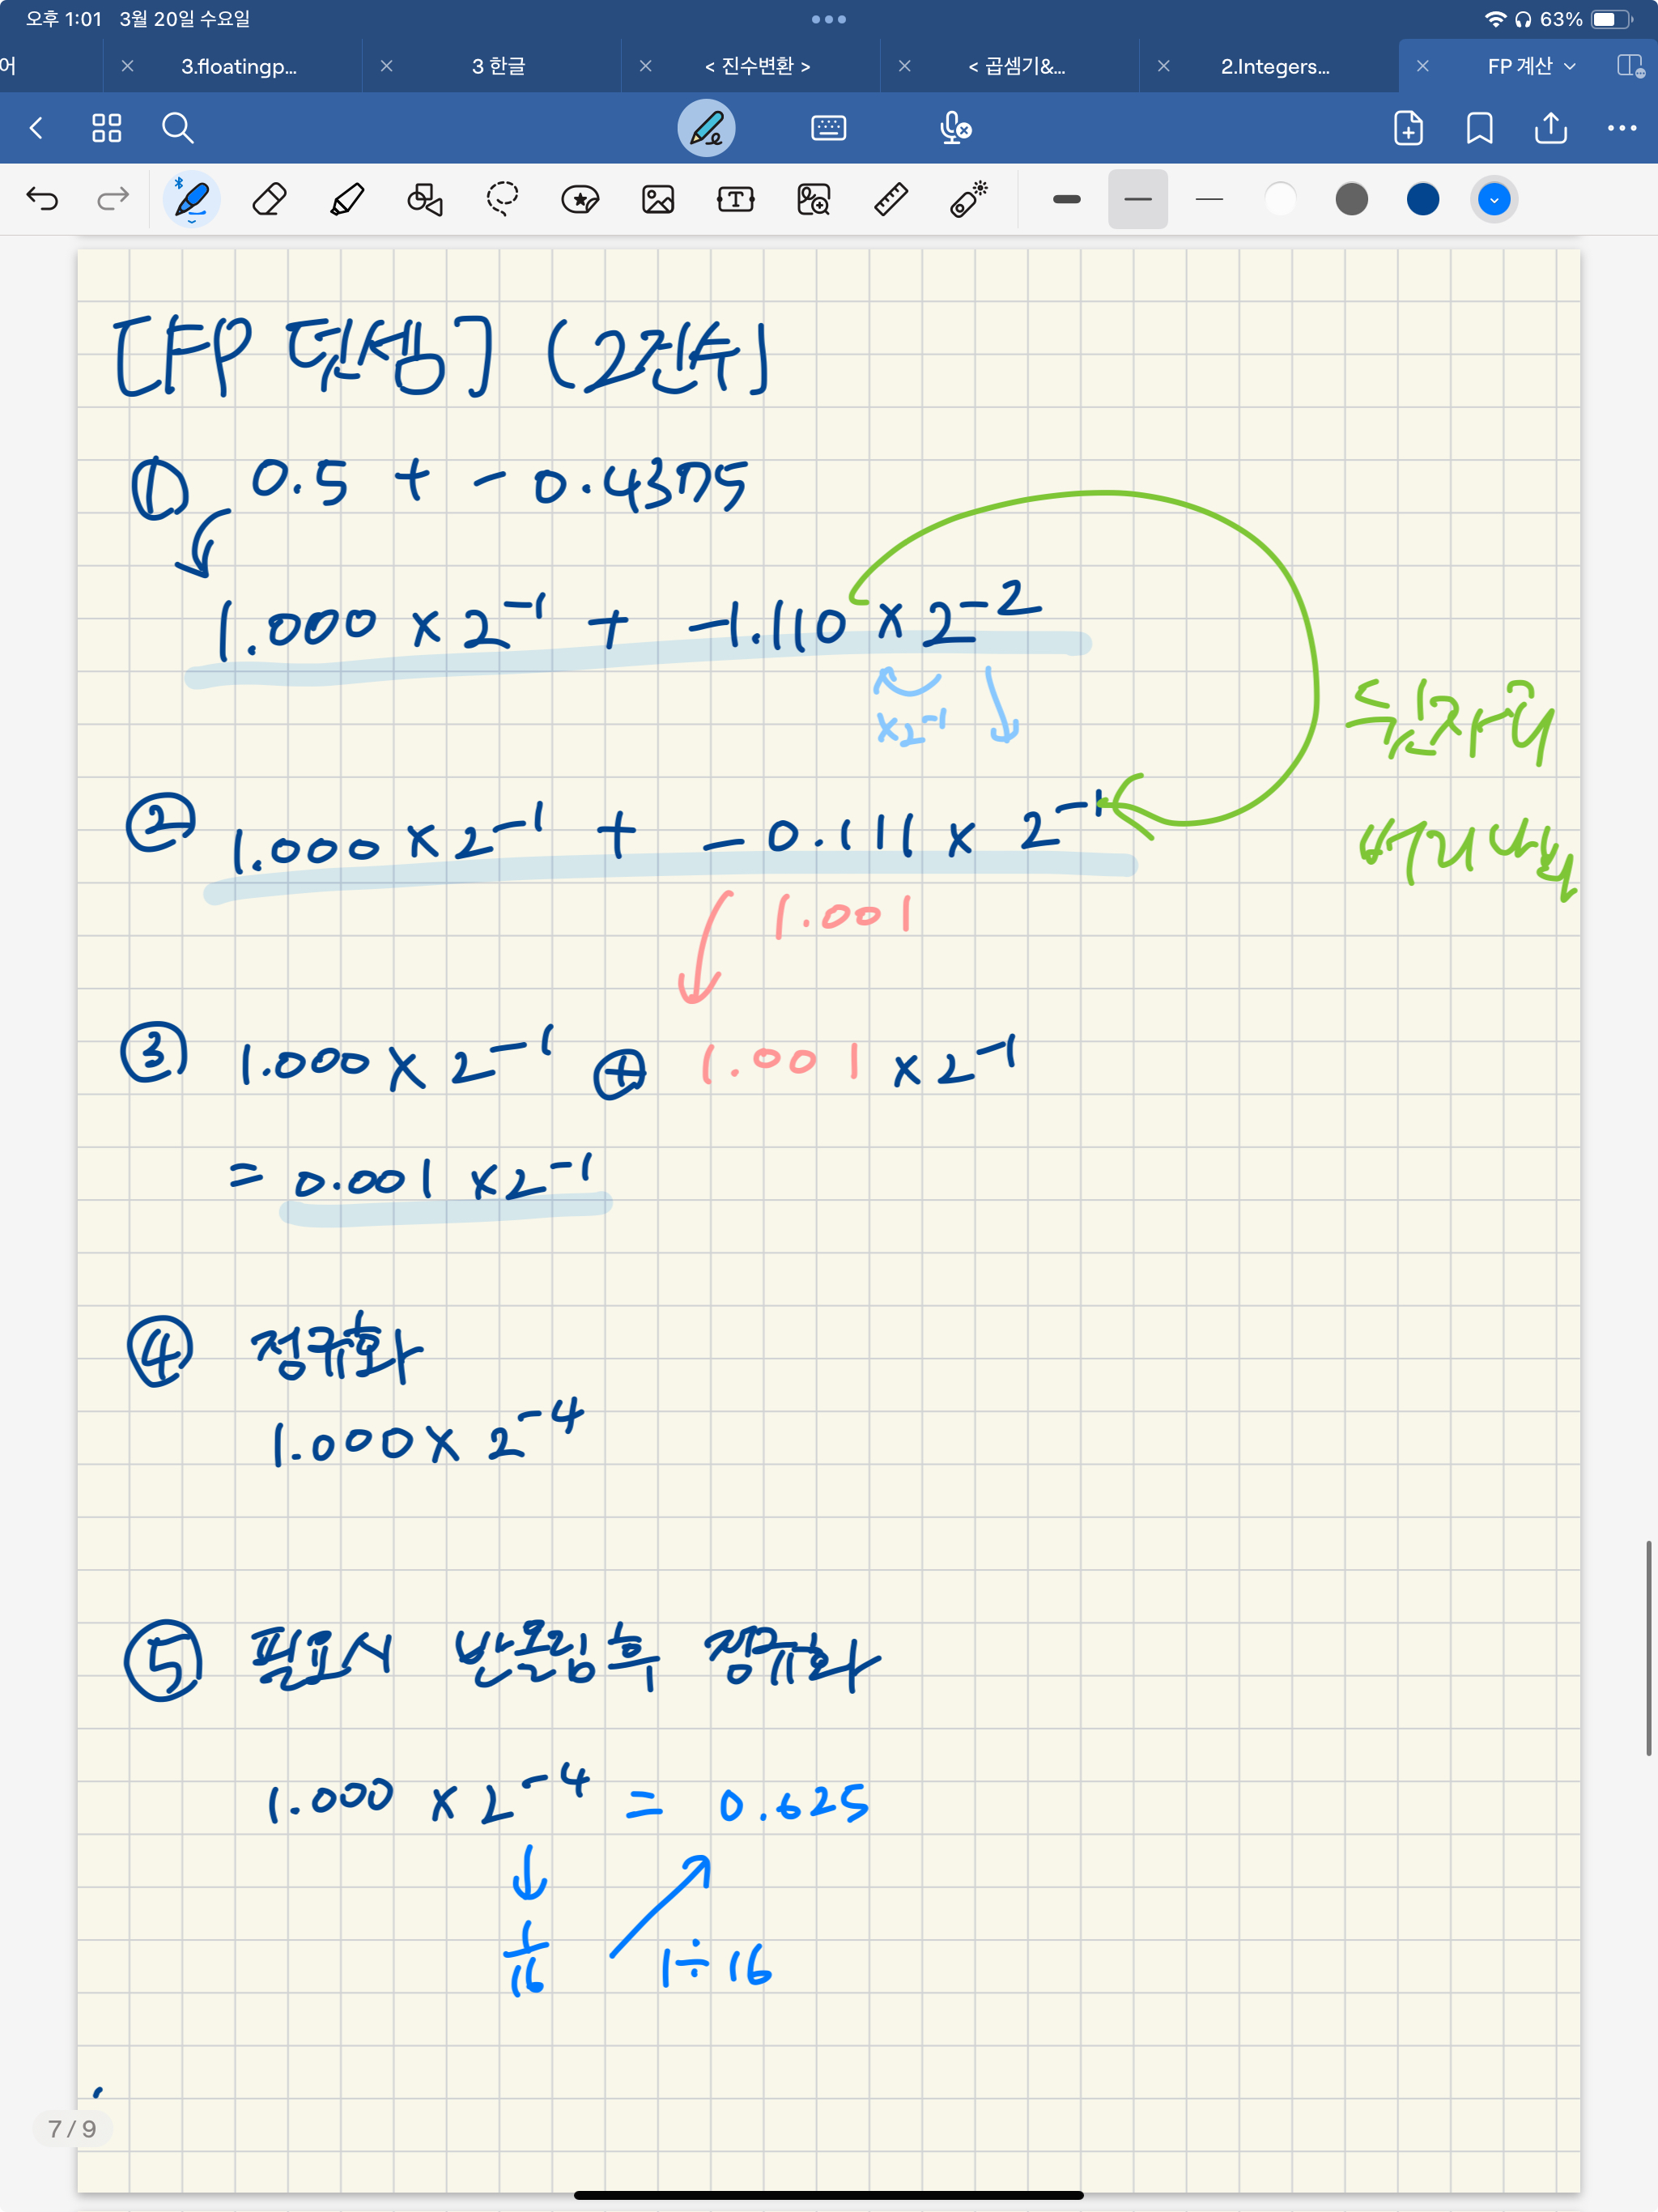 오후 1:01 3월 20일 수요일 63%
어 3.floatingp... 3 한글 < 진수변환 > < 곱셈기&... 2.Integers... FP 계산
[FP 덧셈] (2진수)
① 0.5 + - 0.4375
1.000 × 2⁻¹ + -1.110 × 2⁻²
×2⁻¹
② 1.000 × 2⁻¹ + - 0.111 × 2⁻¹
1.001
③ 1.000 × 2⁻¹ ⊕ 1.001 × 2⁻¹
= 0.001 × 2⁻¹
④ 정규화
1.000 × 2⁻⁴
⑤ 필요시 반올림후 정규화
1.000 × 2⁻⁴ = 0.625
1/16 1÷16
7 / 9